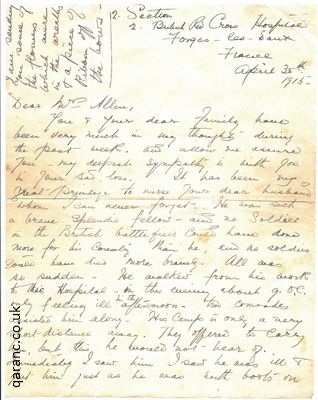 I am sending
you some of
the flowers
which were
in the wreaths
& a piece of
Ribbon off
the bows -
12. Section
2. British Red Cross Hospital
Forges-les-Eaux
France
April 30th
1915-
Dear Mrs Allen,
You & your dear family have
been very much in my thoughts during
the past week, and allow me assure
you my deepest sympathy is with you
in your sad loss. It has been my
great privilege to nurse your dear husband
whom I can never forget - He was such
a brave splendid fellow - and no Soldier
in the British battlefield could have done
more for his Country than he and no soldier
could have died more bravely. All was
so sudden - He walked from his work
to this Hospital - in the evening about 9.0.C.
feeling ill in the afternoon. Two comrades
him along. His Camp is only a very
short distance away. They offered to carry
but this he would not hear of.
I saw him I saw he was ill &
him just as he was with boots on
qaranc.co.uk